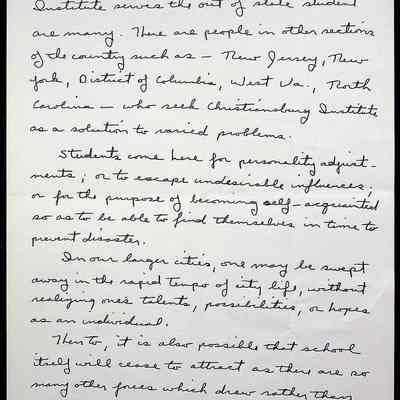 Institute serves the out of state student
are many. There are people in other sections
of the country such as - New Jersey, New
York, District of Columbia, West Va., North
Carolina - who seek Christiansburg Institute
as a solution to varied problems.
Students come here for personality adjust-
ments; or to escape undesirable influences;
or for the purpose of becoming self-acquainted
so as to be able to find themselves in time to
prevent disaster.
In our larger cities, one may be swept
away in the rapid tempo of city life, without
realizing one's talents, possibilities, or hopes
as an individual.
Then to, it is also possible that school
itself will cease to attract as there are so
many other forces which draw rather than